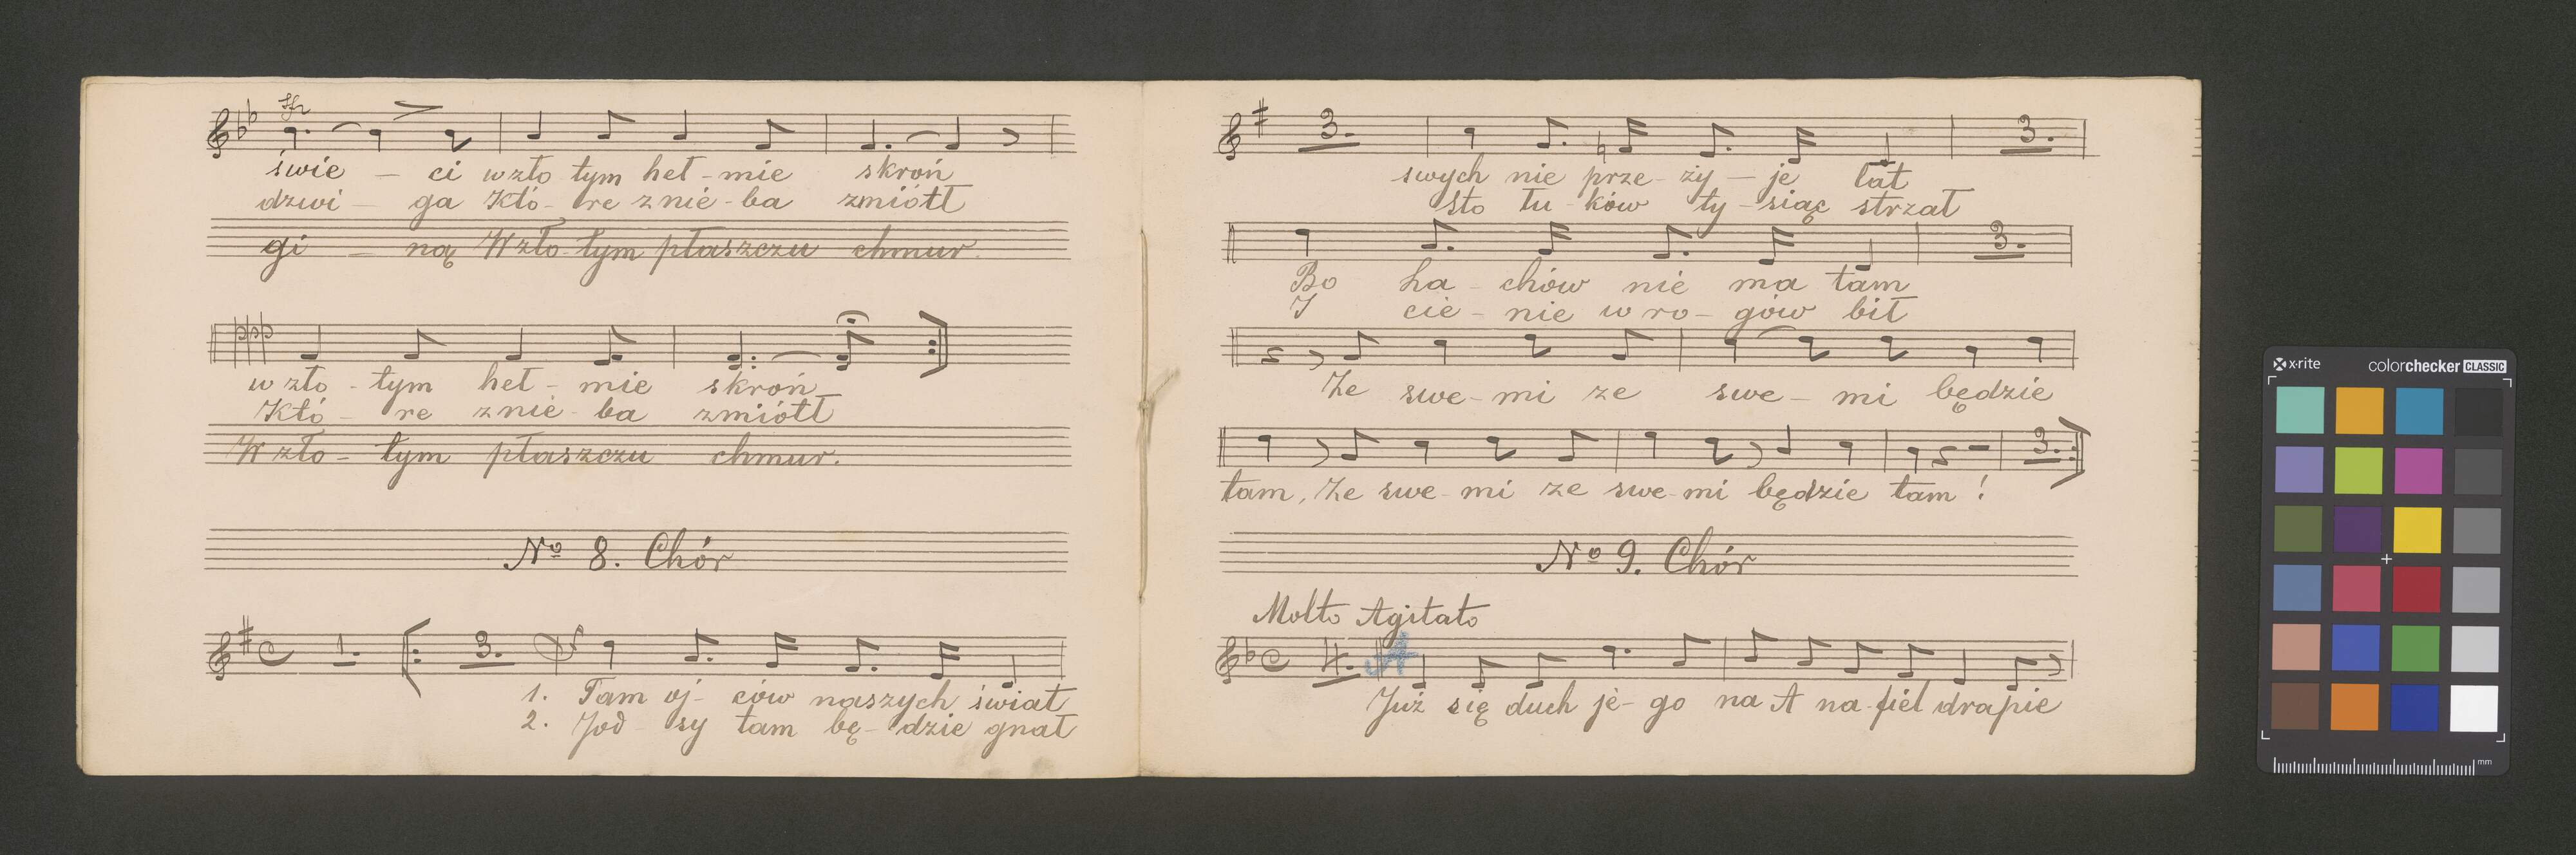 sfz
świe - ci w zło tym heł - mie skroń
dzwi - ga Któ - re z nie - ba zmiótł
gi - ną W zło - tym płaszczu chmur.
w zło - tym heł - mie skroń
Któ - re z nie - ba zmiótł
W zło - tym płaszczu chmur.
No 8. Chór
1. 3.
1. Tam oj - ców naszych świat
2. Jod - sy tam bę - dzie gnał
3. 3.
swych nie prze - ży - je lat
sto tu - ków ty - siąc strzał
3.
Bo ha - chów nie ma tam
I cie - nie w ro - gów bił
Ze swe - mi ze swe - mi będzie
3.
tam, Ze swe - mi ze swe - mi będzie tam!
No 9. Chór
Molto Agitato
4. A
Już się duch je - go na A na - fiel drapie
x-rite colorchecker CLASSIC
mm